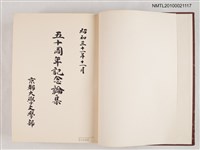 NMTL20100021117
昭和三十一年十一月
五十周年記念論集
京都大學文學部